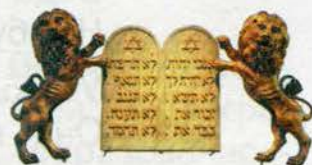 אנכי יהוה
לא יהיה לך
לא תשא
זכור את
כבד את
לא תרצח
לא תנאף
לא תגנב
לא תענה
לא תחמד